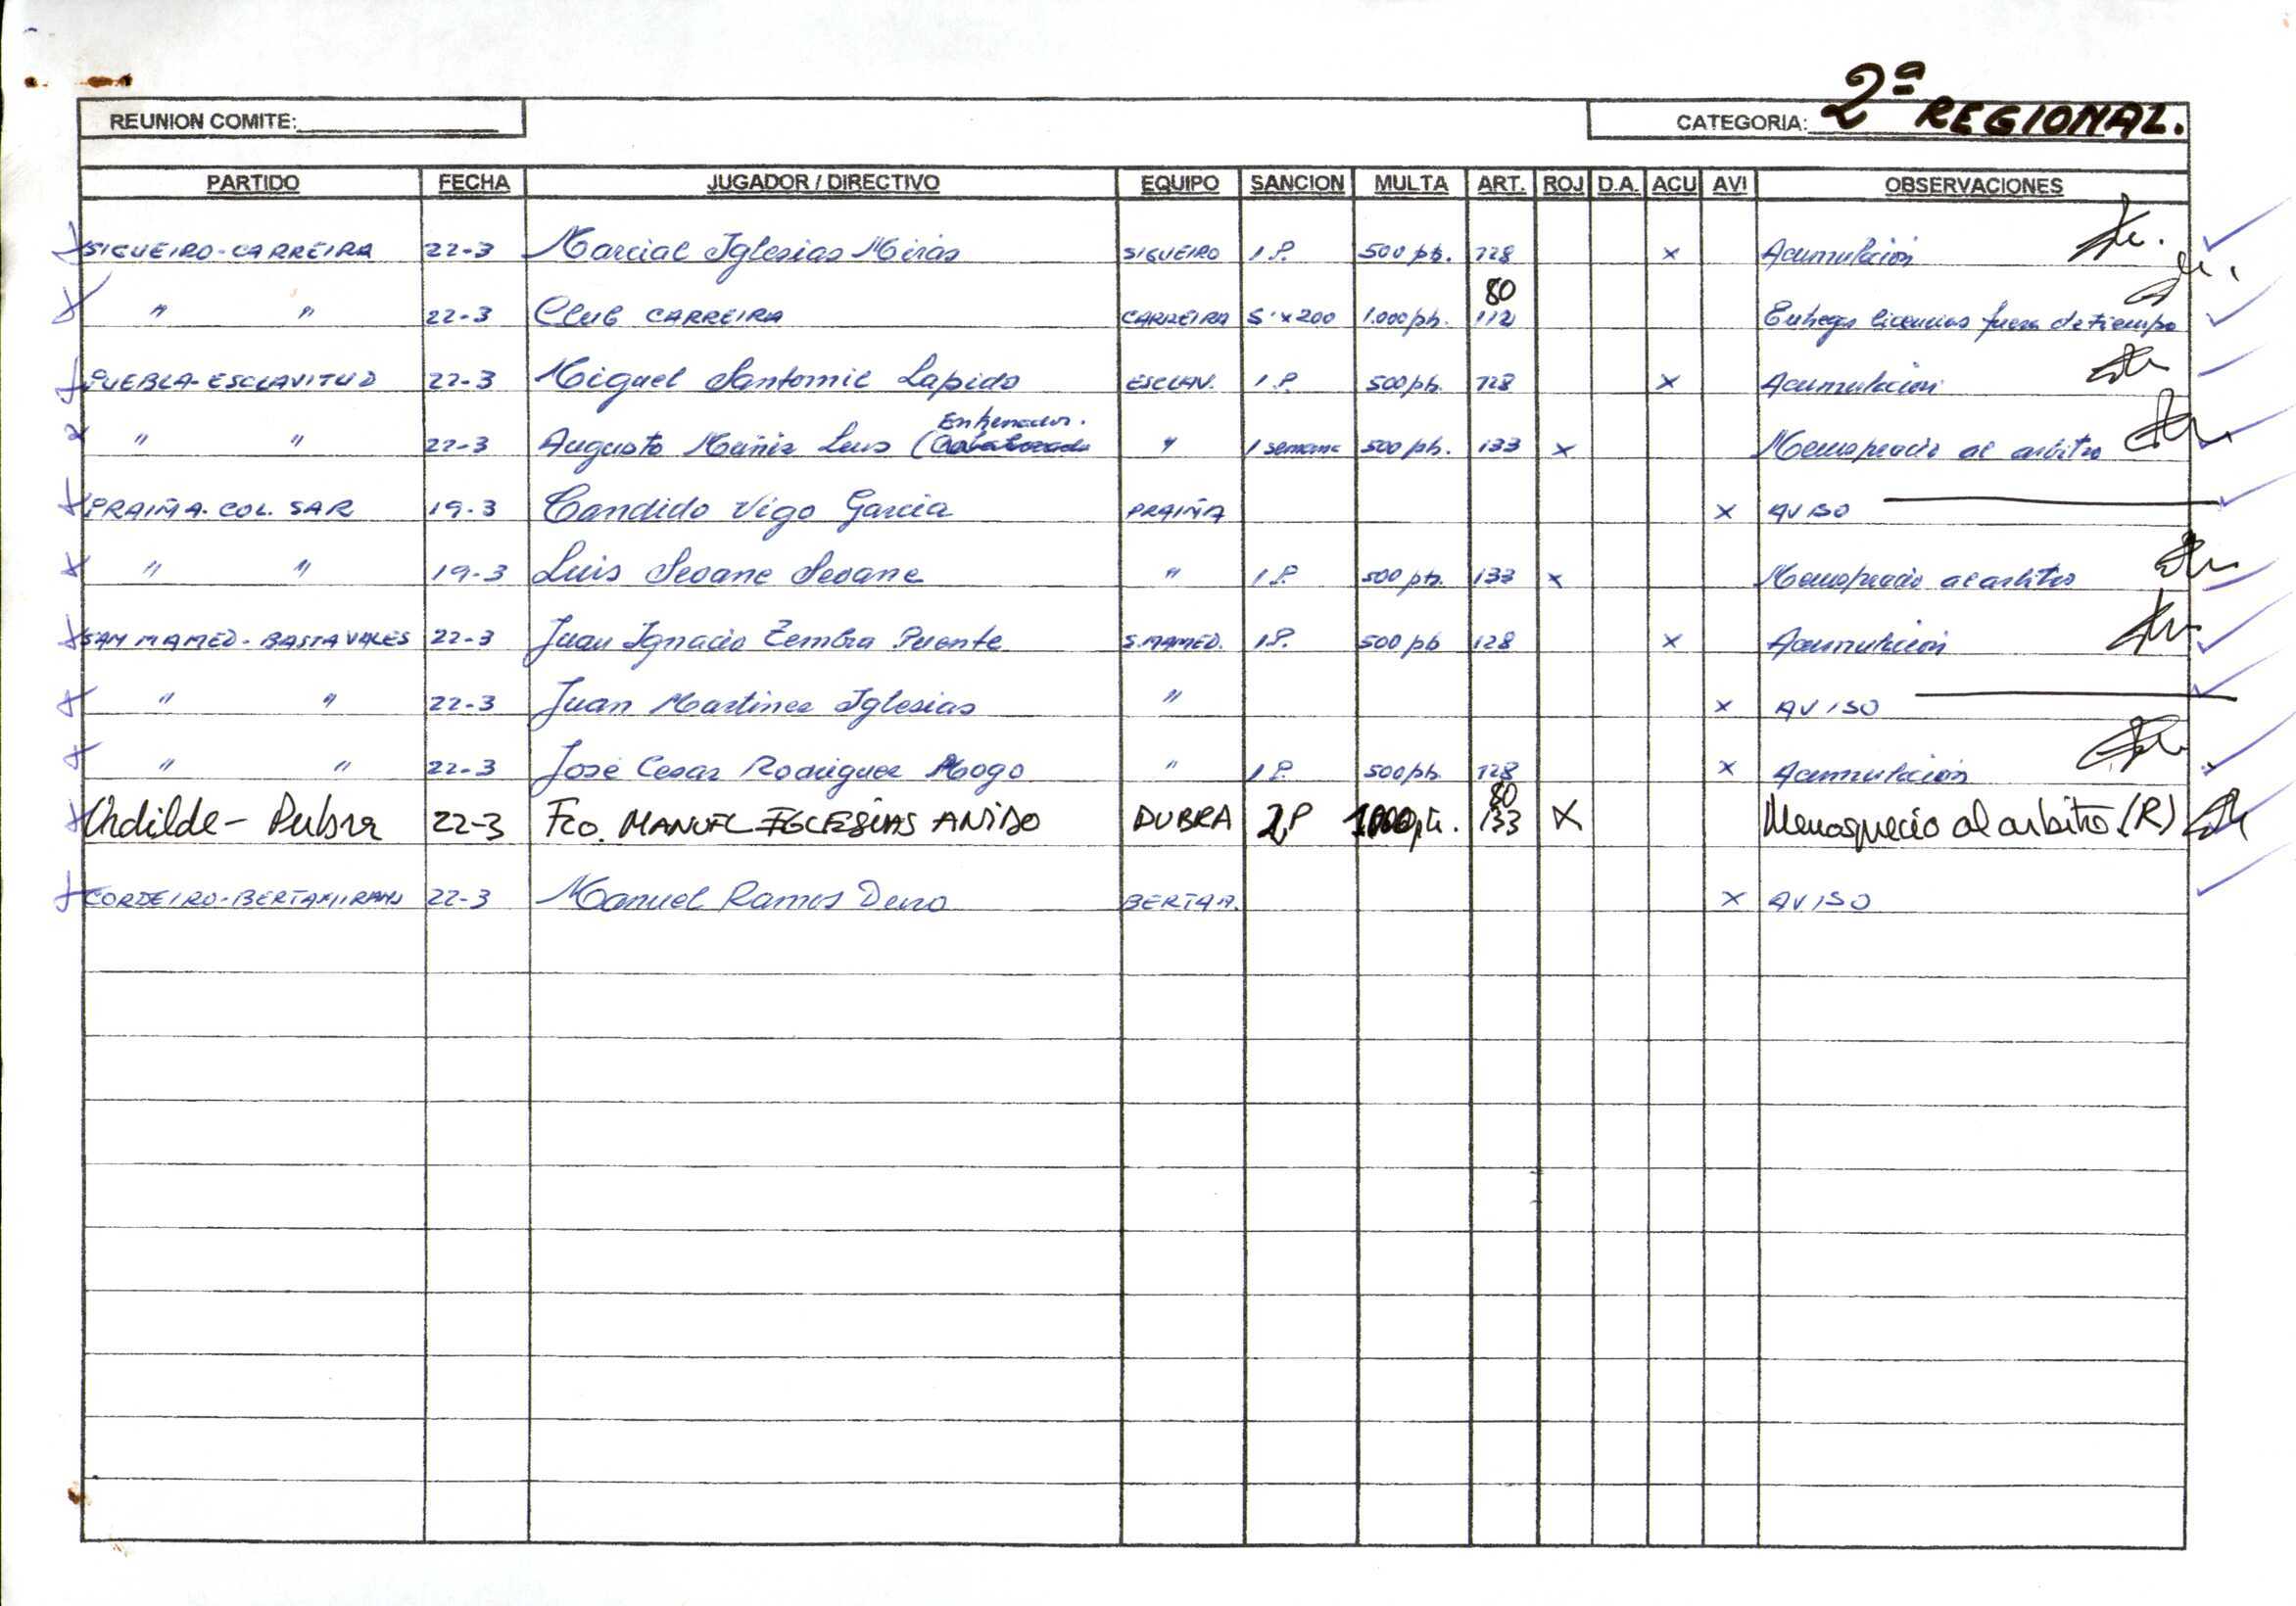 REUNION COMITE:
CATEGORIA: 2ª REGIONAL.
PARTIDO FECHA JUGADOR / DIRECTIVO EQUIPO SANCION MULTA ART. ROJ D.A. ACU AVI OBSERVACIONES
SIGUEIRO-CARREIRA 22-3 Marcial Iglesias Miras SIGUEIRO 1 P. 500 pts. 128 x Acumulación
" " 22-3 Club CARREIRA CARREIRA 5'x200 1.000 pts. 80 112 Entrega licencias fuera de tiempo
PUEBLA-ESCLAVITUD 22-3 Miguel Santomil Lapido ESCLAV. 1 P. 500 pts. 128 x Acumulación
" " 22-3 Augusto Muñiz Luis (Entrenador. " 1 semana 500 pts. 133 x Menosprecio al arbitro
PRAIÑA-COL. SAR 19-3 Candido Vigo Garcia PRAIÑA x AVISO
" " 19-3 Luis Seoane Seoane " 1 P. 500 pts. 133 x Menosprecio al arbitro
SAN MAMED-BASTAVALES 22-3 Juan Ignacio Zembra Puente S.MAMED. 1 P. 500 pts 128 x Acumulación
" " 22-3 Juan Martinez Iglesias " x AVISO
" " 22-3 José Cesar Rodriguez Mogo " 1 P. 500 pts. 128 x Acumulación
Urdilde - Dubra 22-3 Fco. MANUEL IGLESIAS ANIDO DUBRA 2 P 1000 pts. 80 133 X Menosprecio al arbitro (R)
CORDEIRO-BERTAMIRANS 22-3 Manuel Ramos Deno BERTAM. x AVISO